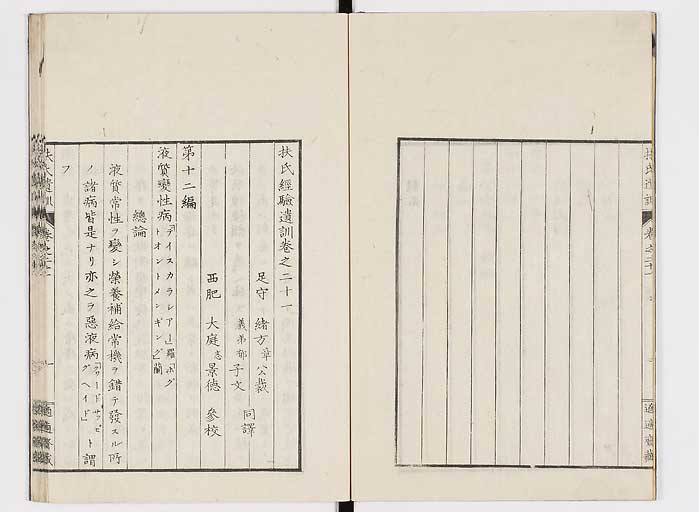 扶氏遺訓
卷之二十一
適適齋藏
扶氏經驗遺訓卷之二十一
足守 緒方章公裁
義弟郁子文 同譯
西肥 大庭忞景德 參校
第十二編
液質變性病「ディスカラシアー」羅「ボグトオントメンギング」蘭
總論
液質常性ヲ變シ榮養補給常機ヲ錯テ發スル所
ノ諸病皆是ナリ亦之ヲ惡液病ト謂
フ
扶氏遺訓
一
適適齋藏